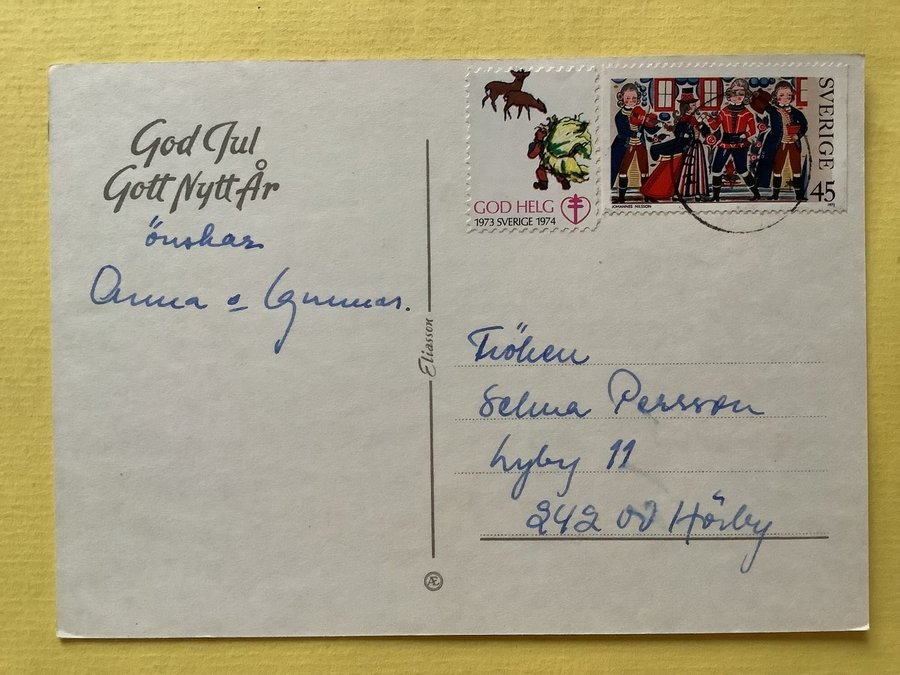 God Jul
Gott Nytt År
önskar
Anna o Gunnar.
Eliasson
Æ
GOD HELG
1973 SVERIGE 1974
SVERIGE
45
JOHANNES NILSSON
1973
Fröken
Selma Persson
Lyby 11
242 00 Hörby